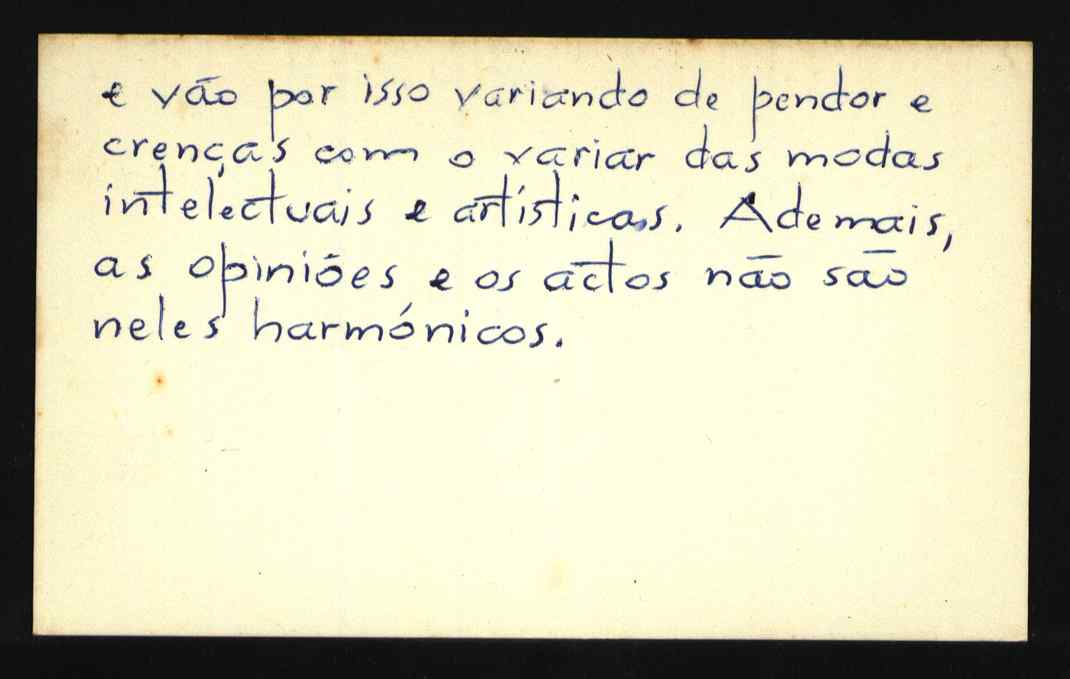 e vão por isso variando de pendor e
crenças com o variar das modas
intelectuais e artísticas. Ademais,
as opiniões e os actos não são
neles harmónicos.